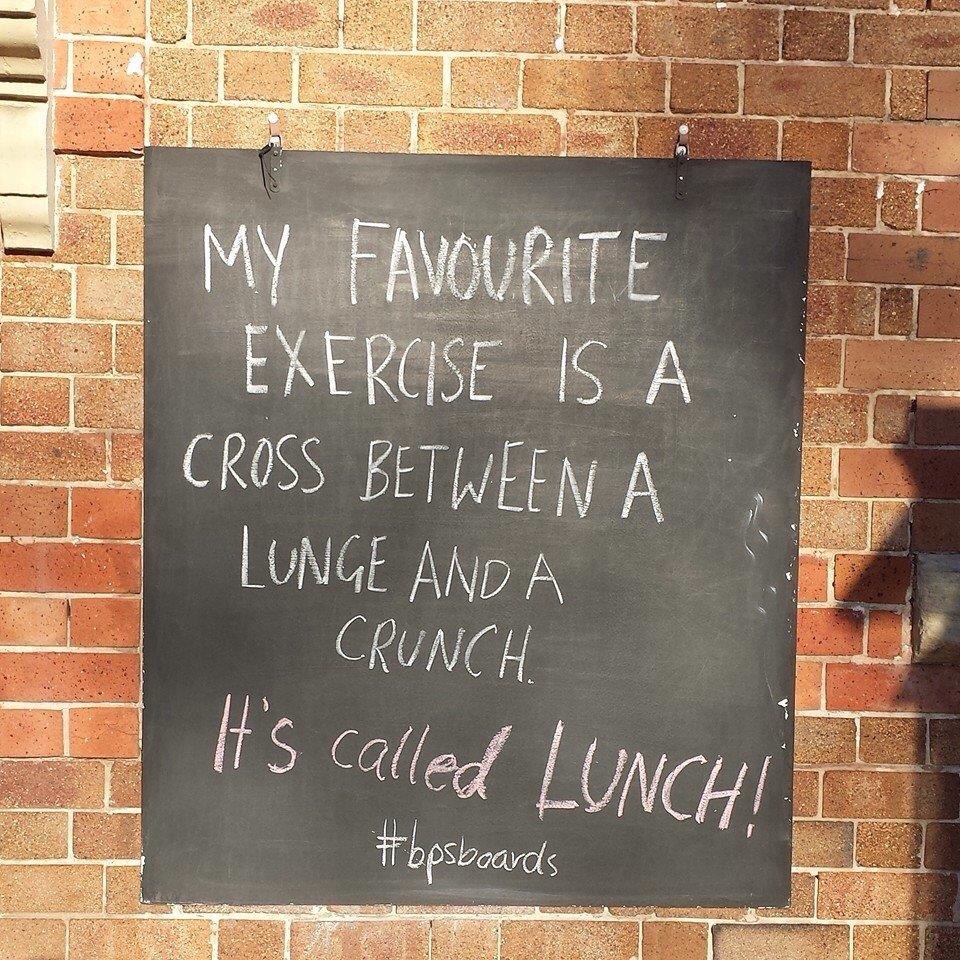 MY FAVOURITE
EXERCISE IS A
CROSS BETWEEN A
LUNGE AND A
CRUNCH.
It's called LUNCH!
#bpsboards